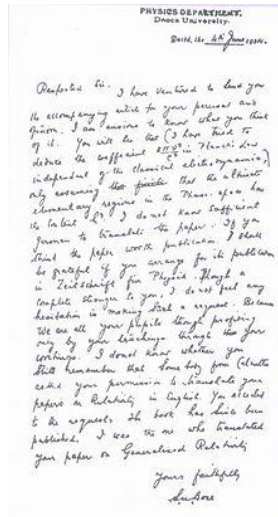 PHYSICS DEPARTMENT,
Dacca University.
Dated, the 4th June 1924.
Respected Sir, I have ventured to send you
the accompanying article for your perusal and
opinion. I am anxious to know what you think
of it. You will see that I have tried to
deduce the coefficient 8πν²/c³ in Planck's Law
independent of the classical electrodynamics,
only assuming that the ultimate
elementary regions in the Phase-space has
the content h³. I do not know sufficient
German to translate the paper. If you
think the paper worth publication, I shall
be grateful if you arrange for its publication
in Zeitschrift für Physik. Though a
complete stranger to you, I do not feel any
hesitation in making such a request. Because
We are all your pupils though profiting
only by your teachings through your
writings. I donot know whether you
still remember that somebody from Calcutta
asked your permission to translate your
papers on Relativity in English. You acceded
to the request. The book has since been
published. I was the one who translated
your paper on Generalised Relativity.
Yours faithfully
S.N. Bose